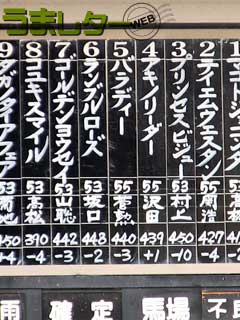 うまレター WEB
1 マコトジーニン
2 テイエムウエスタン 55 427 -4
3 プリンセスビジュー 53 村上 450 -10
4 アキノリーダー 55 沢田 439 +1
5 バラディー 55 菅勲 440 -3
6 ランブルローズ 53 坂口 448 -2
7 ゴールデンヨウセイ 53 山聡 442 -3
8 ユキスマイル 53 高松 390 -4
9 タガノタイアフェア 53 450
雨 確定 馬場 不良